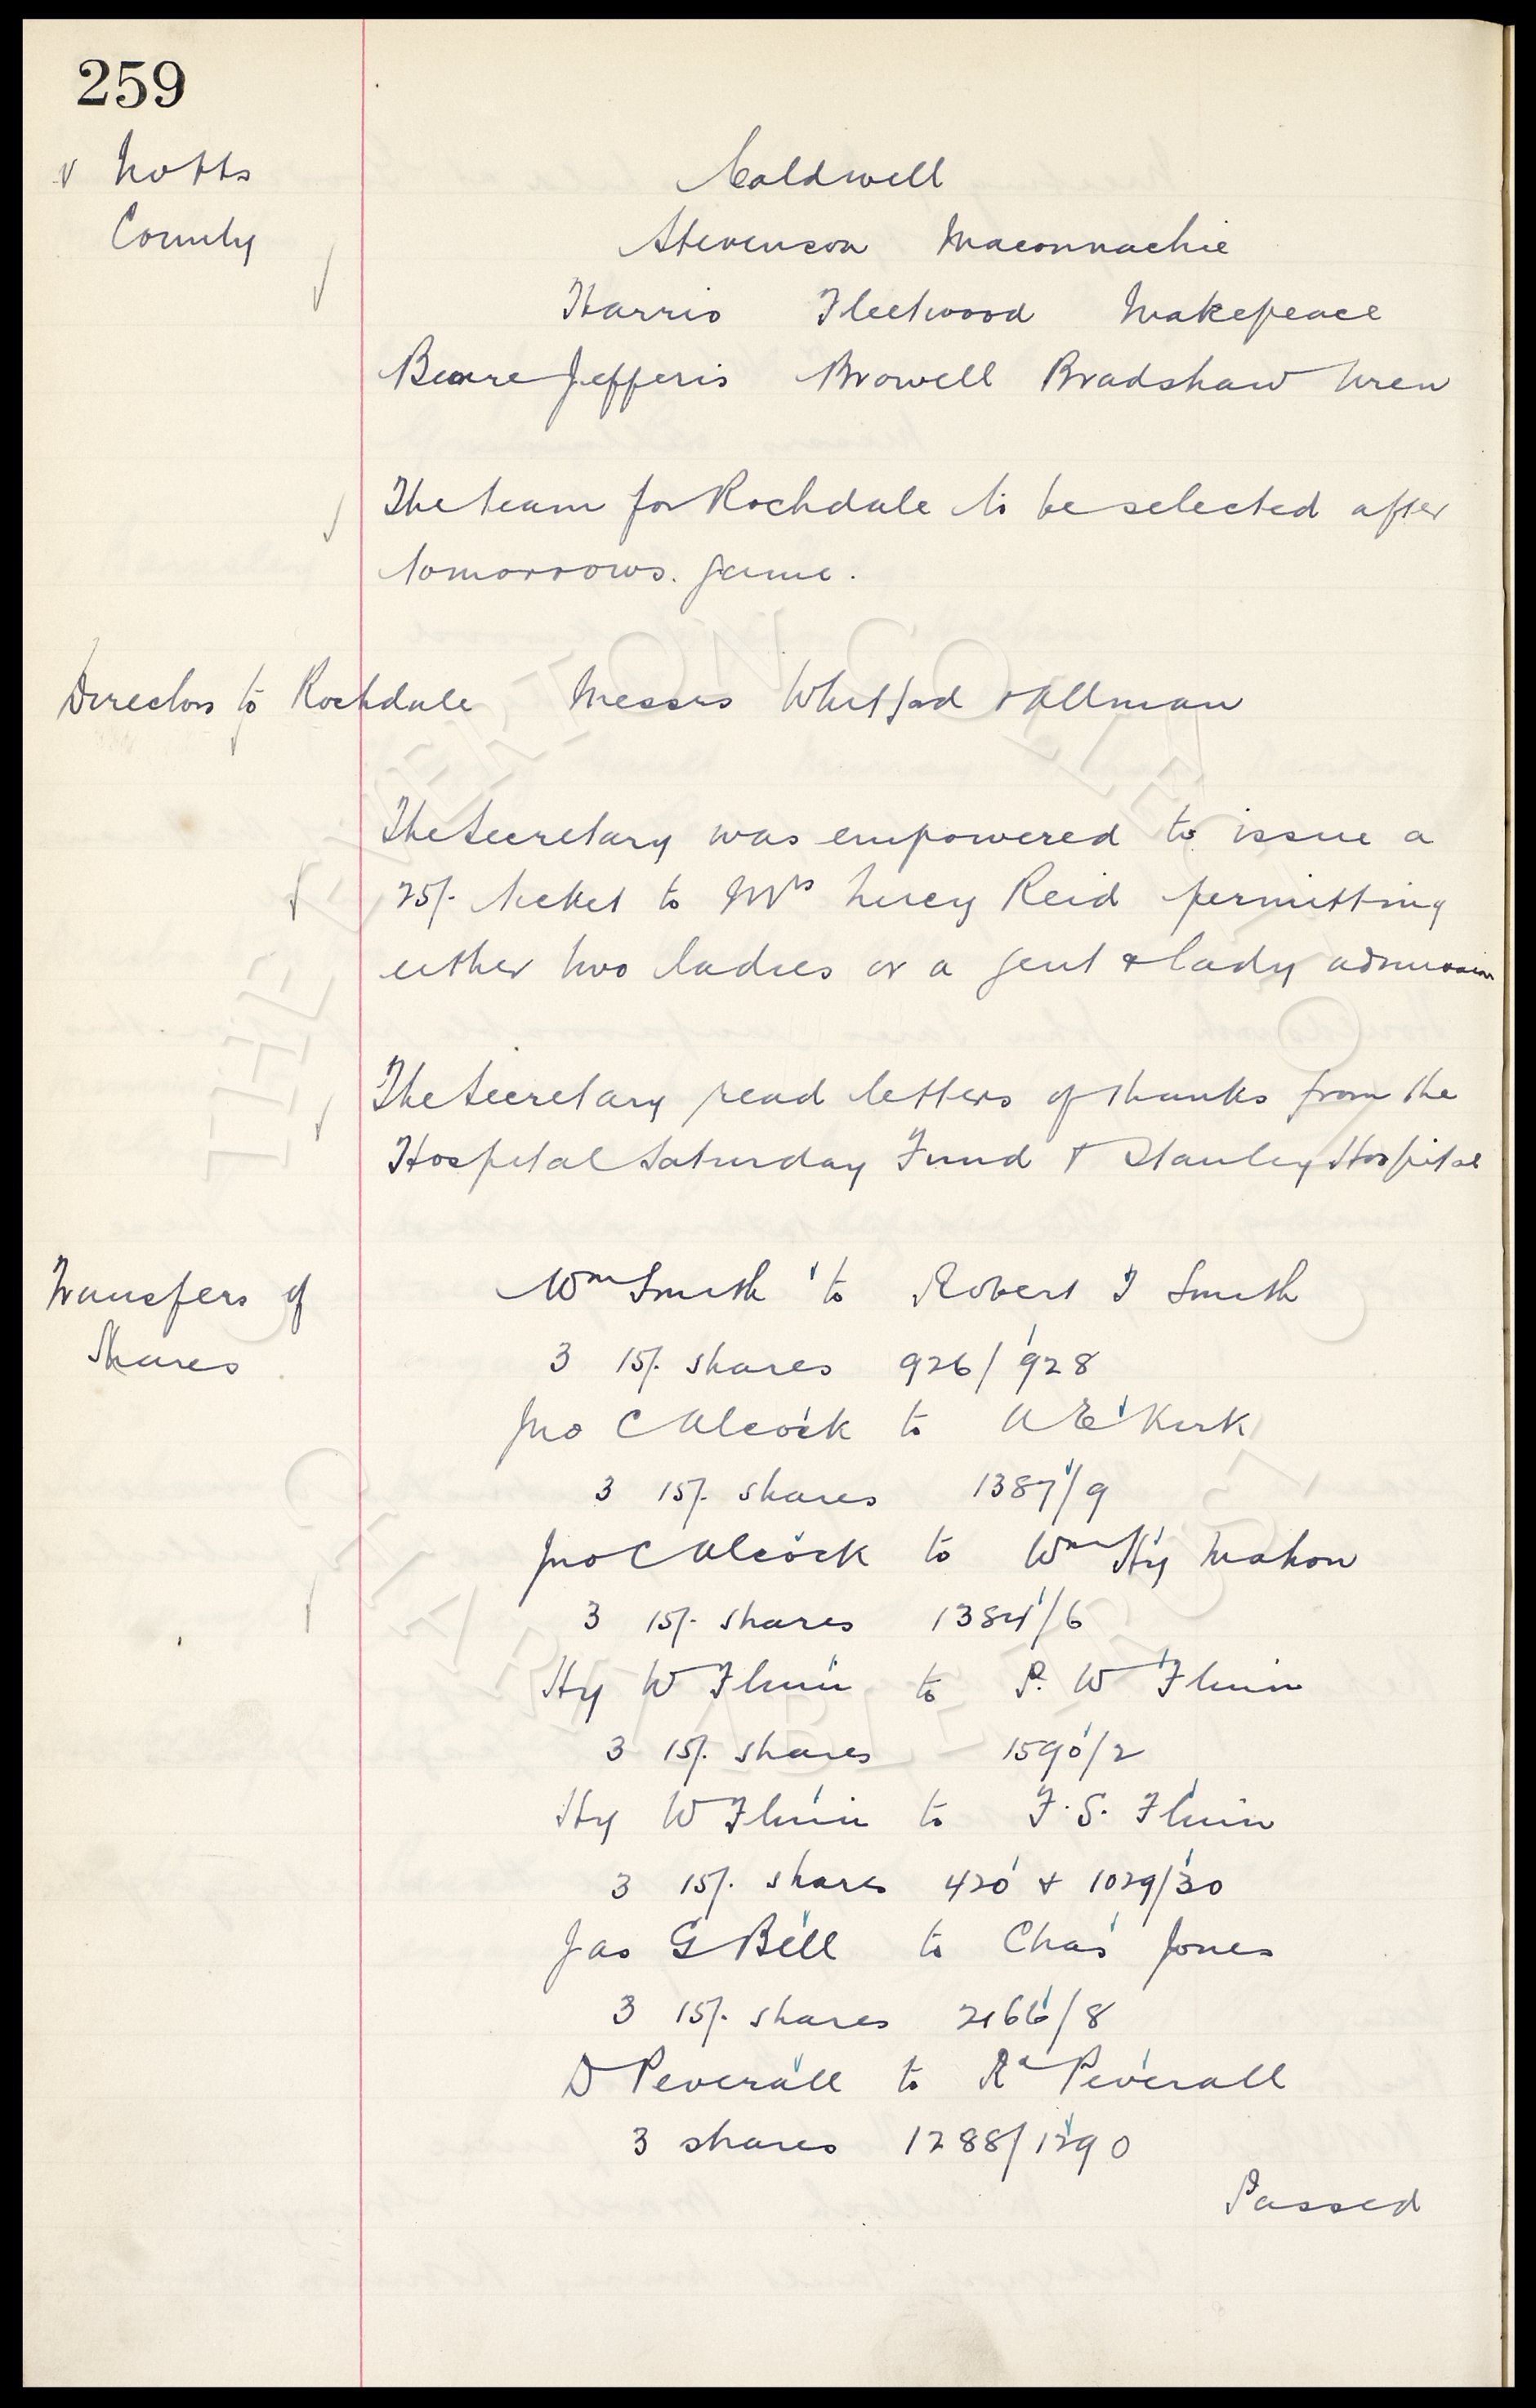 259
v Notts
County
Caldwell
Stevenson Maconnachie
Harris Fleetwood Makepeace
Beare Jefferis Browell Bradshaw Uren
The team for Rochdale to be selected after
tomorrows. game.
Directors to Rochdale Messrs Whitford & Allman
The Secretary was empowered to issue a
25/- ticket to Mrs Lucey Reid permitting
either two ladies or a gent & lady admission
The Secretary read letters of thanks from the
Hospital Saturday Fund & Stanley Hospital
Transfers of
Shares
Wm Smith to Robert J Smith
3 15/- shares 926/928
Jno C Alcock to A E Kirk
3 15/- shares 1387/9
Jno C Alcock to Wm Hy Mahon
3 15/- shares 1384/6
Hy W Fluin to P. W Fluin
3 15/- shares 1590/2
Hy W Fluin to F. S. Fluin
3 15/- shares 420 & 1029/30
Jas G Bell to Chas Jones
3 15/- shares 2166/8
D Peverall to Rd Peverall
3 shares 1288/1290
Passed
THE EVERTON COLLECTION